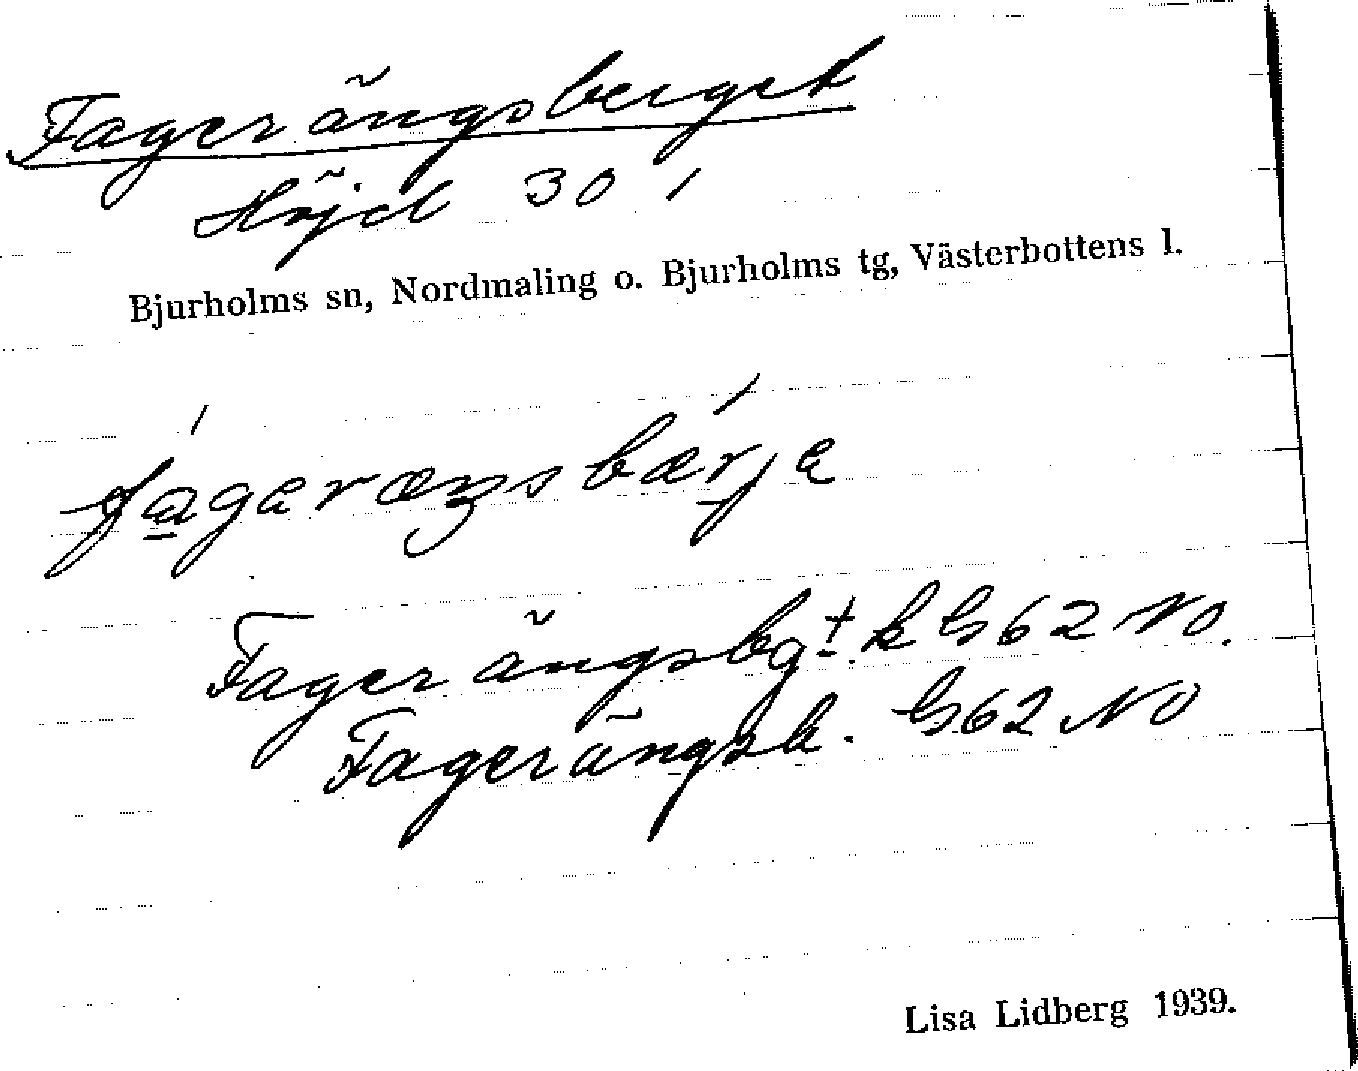 Fagerängsberget
Höjd 301
Bjurholms sn, Nordmaling o. Bjurholms tg, Västerbottens l.
Fagerängsbgt. k G62 NO.
Fagerängsb. G62 NO
Lisa Lidberg 1939.